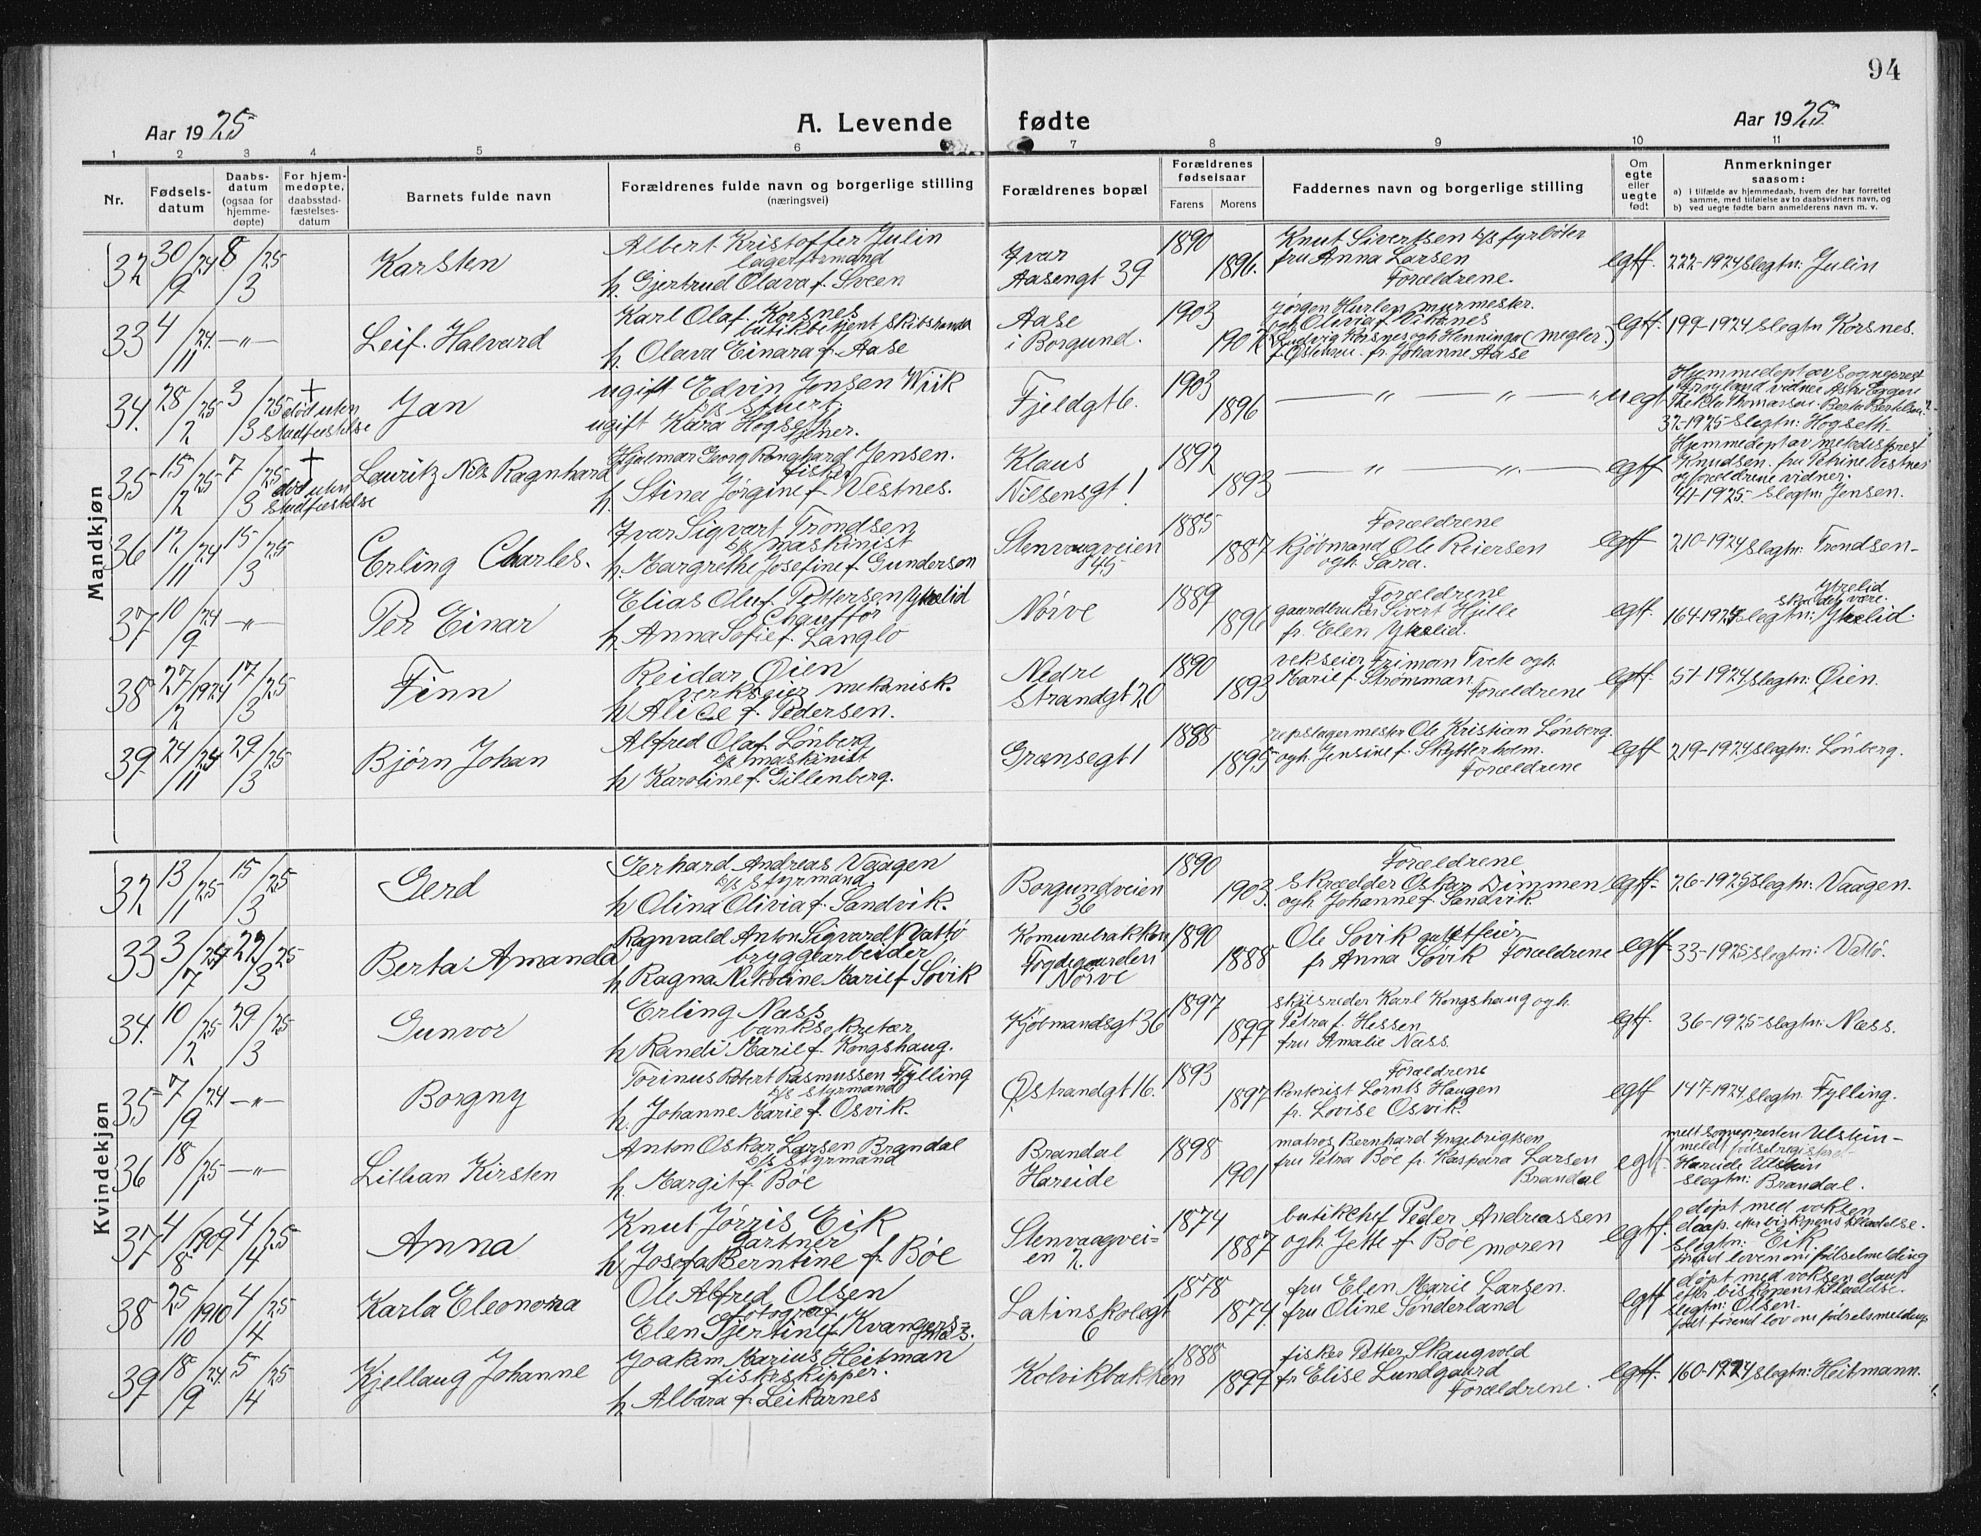 94
Aar 1925 A. Levende fødte Aar 1925
1 2 3 4 5 6 7 8 9 10 11
Nr.
Fødsels-
datum
Daabs-
datum
(ogsaa for
hjemme-
døpte)
For hjem-
medøpte,
daabsstad-
fæstelses-
datum
Barnets fulde navn
Forældrenes fulde navn og borgerlige stilling
(næringsvei)
Forældrenes bopæl
Forældrenes
fødselsaar
Farens Morens
Faddernes navn og borgerlige stilling
Om
egte
eller
uegte
født
Anmerkninger
saasom:
a) i tilfælde av hjemmedaab, hvem der har forrettet
samme, med tilføielse av to daabsvidners navn, og
b) ved uegte fødte barn anmelderens navn m. v.
Mandkjøn
32 30/9 24 8/3 25
Karsten
Albert Kristoffer Julin
lagerformand
h. Gjertrud Olava f. Sveen
Ivar
Aasengt 39
1890
1896.
Knut Sivertsen b/s fyrbøter
fru Anna Larsen
Forældrene.
egtf.
222-1924 slegtn: Julin
33 4/11 24. —"—
Leif. Halvard
Karl Olaf Korsnes
h. Olava Einara f. Aase
Aase
i Borgund.
1903
1902
Jørgen Hurlen murmester.
ogh. Olivia f. Viknes
Ludvig Korsnes ogh Henninga (megler)
fr. Johanne Aase
egtf.
199-1924 slegtn Korsnes.
34. 28/2 25 3/3 25
+
død uten
stadfæstelse
Jan
ugift Edvin Jonsen Wiik
b/s stuert
ugift Kara Hogseth
tjener.
Fjeldgt 6.
1903
1896
— " — " — "
uegt
Hjemmedøpt av sogneprest
Frøyland vidner Astri Eggen
Thekla Thomassen. Berta Bertelsen
37-1925 slegtn: Hogseth.
35 15/2 25 7/3 25
+
død uten
stadfæstelse
Lauritz Nils Ragnhard
Hjalmar Georg Ranghard Jensen.
fisker
h. Stina Jørgine f. Vestnes.
Klaus
Nilsensgt 1
1892
1893
— " — " —
egtf
Hjemmedøpt av metodistprest
Knudsen. fru Petrine Vestnes
og forældrene vidner.
41-1925- slegtn Jensen.
36 12/11 24 15/3 25
Erling Charles.
Ivar Sigvart Trondsen
b/s maskinist
h. Margrethe Josefine f. Gunderson
Stenvaagveien
45
1885
1887
Forældrene
kjøbmand Ole Reiersen
ogh. Sara.
egtf
210-1924 slegtn: Trondsen-
37 10/9 24 —"—
Per Einar
Elias Oluf Pettersen Ytrelid
Chauffør
h Anna Sofie f. Langlo
Nørve
1889
1896
Forældrene
gaardbruker Sivert Hjelle
fr. Elen Ytrelid.
egtf.
Ytrelid
skal dey være.
164-1924 slegtn: Ytrelid.
38 27/2 1924 17/3 25
Finn
Reidar Øien
verkseier mekanisk.
h Alice f. Pedersen.
Nedre
Strandgt 20
1890
1893
vekseier Friman Tvete ogh.
Marie f. Strømman
Forældrene
egtf.
51-1924 slegtn: Øien.
39 24/11 24 29/3 25
Bjørn Johan
Alfred Olaf Lönberg
b/s maskinist
h Karoline f. Gillenberg.
Grænsegt 1
1888
1895
repslagermester Ole Kristian Lönberg.
ogh. Jensine f. Skytterholm.
Forældrene
egtf
219-1924 slegtn: Lönberg.
Kvindekjøn
32 13/11 25 15/3 25
Gerd
Gerhard Andreas Vaagen
b/s styrmand
h Olina Olivia f. Sandvik.
Borgundveien
36
1890
1903.
Forældrene
skrædder Oskar Dimmen
ogh. Johanne f. Sandvik
egtf.
26-1925 slegtn: Vaagen.
33 3/7 24 22/3 25
Berta Amanda
Ragnvald Anton Sigvard Vattö
bryggearbeider
h Ragna Nikoline Marie f Søvik
Komunebrakken
Fogdegaarden
Nørve
1890
1888
Ole Søvik
fr Anna Søvik forældrene
egtf.
33-1925 slegtn: Vattö.
34. 10/2 25 29/3 25
Gunvor
Erling Næss
banksekretær
h Randi Marie f. Kongshaug.
Kjøbmandsgt 36
1897
1899
skibsreder Karl Kongshaug ogh.
Petra f. Hessen
fru Amalie Næss.
egtf.
36-1925 slegtn: Næss.
35 7/9 24 —"—
Borgny
Torinus Robert Rasmussen Fylling
b/s styrmand
h. Johanne Marie f. Osvik.
Ø strandgt 16.
1893
1897
Forældrene
kontorist Lornts Haugen
fr. Lovise Osvik
egtf
147-1924 slegtn. Fylling.
36 18/1 25 —"—
Lillian Kirsten
Anton Oskar Larsen Brandal
b/s styrmand
h. Margit f. Bøe
Brandal
Hareide
1898
1901
matros Bernhard Ingebrigtsen
fru Petra Bøe fr. Kaspara Larsen
Brandal
egtf.
meldt sognepresten Ulstein-
Hareide Ulstein
slegtn: Brandal.
37 4/8 1909 4/4 25
Anna
Knut Jørris Eik
Gartner
h Josefa Berntine f. Bøe
Stenvaagvei-
en 2.
1874
1887
butikchef Peder Andreassen
ogh Jette f. Bøe moren
egtf.
døpt med voksen
daap. efter biskopens tilladelse.
slegtn: Eik.
født førend loven om fødselmelding
38 25/10 1910 4/4 25
Karla Eleonora
Ole Alfred Olsen
Elen Gjertine f. Kvangersnes.
Latinskolegt
6
1878
1874
fru Elen Marie Larsen.
fru Oline Sønderland
egtf
døpt med voksen daap
efter biskopens tilladelse.
slegtn: Olsen.
født førend lov om fødselsmelding
39 18/9 24. 5/4 25
Kjellaug Johanne
Joakim Marius Heitman
fiskeskipper.
h. Albara f. Leikarnes
Kolvikbakken
1888
1899
fisker Petter Skaugvold
fr Elise Lundgaard
Forældrene.
egtf.
160-1924 slegtn: Heitmann.